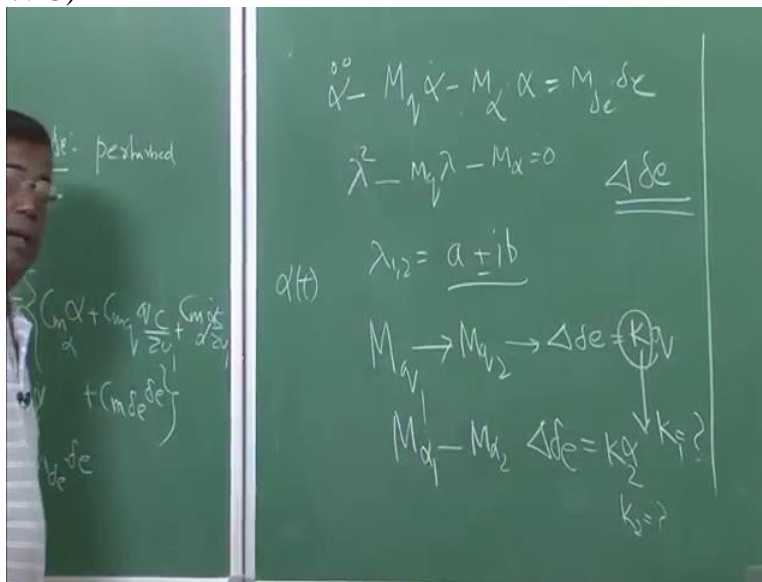 δe - perturbed
{Cm_α α + Cm_q qc/2u₁ + Cm_α̇ α̇c/2u₁
+ Cm_δe δe}
δe δe
α̈ - M_q α̇ - M_α α = M_δe δe
λ² - M_q λ - M_α = 0
Δδe
λ₁,₂ = a ± ib
α(t)
M_q₁ → M_q₂ → Δδe = Kq
K₁ = ?
M_α₁ - M_α₂ Δδe = K₂α
K₂ = ?